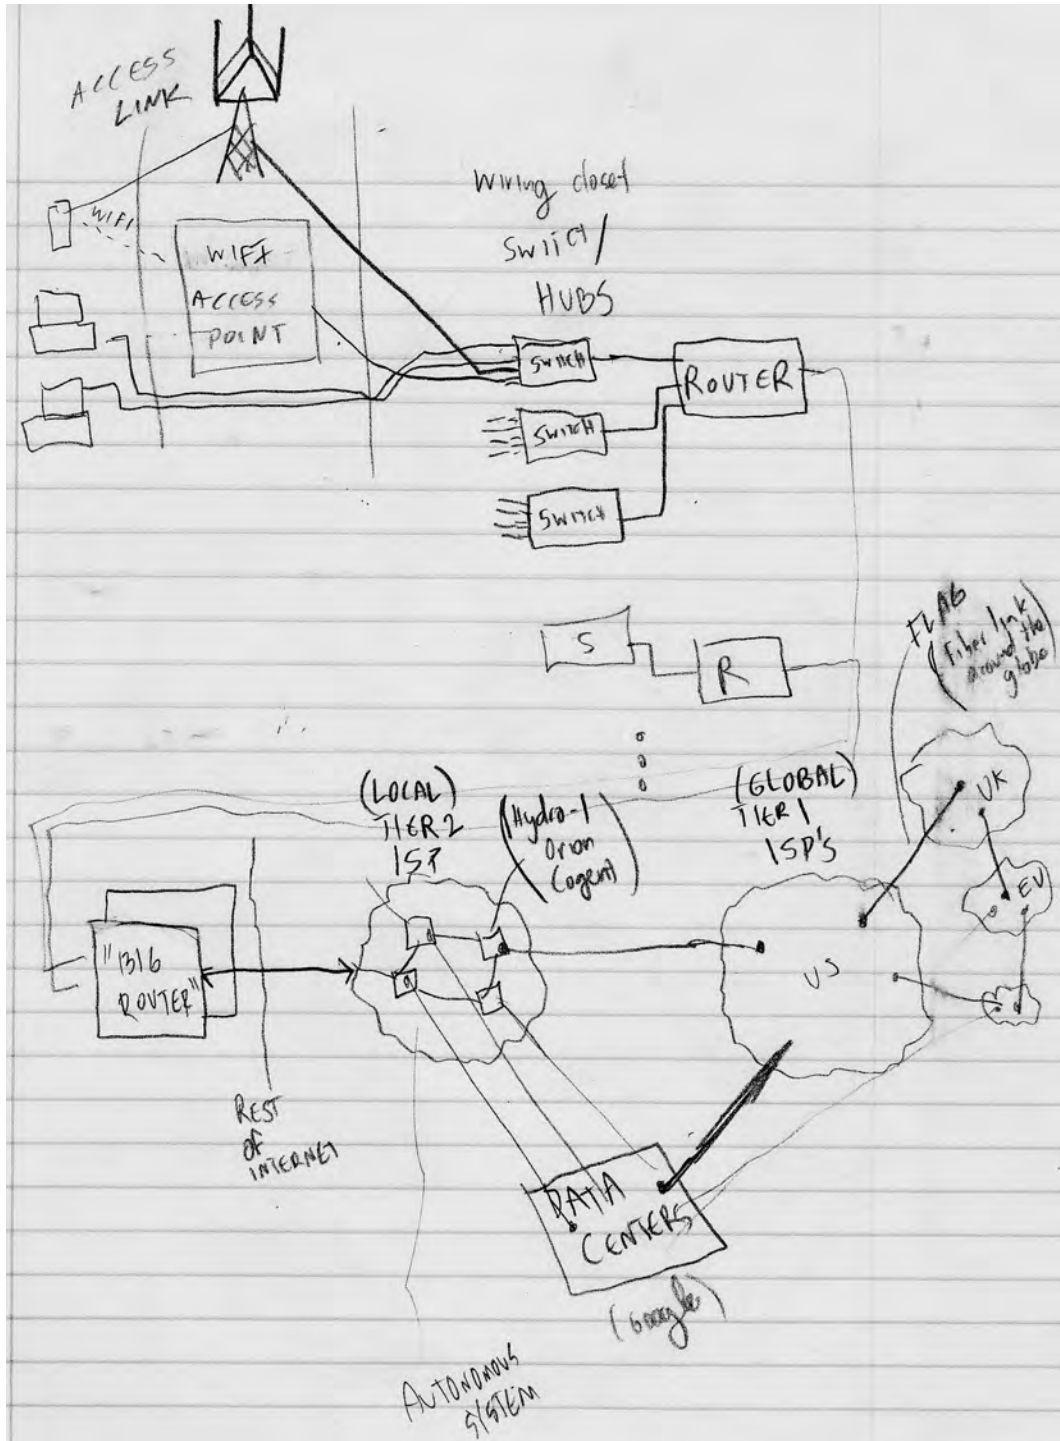 ACCESS
LINK
WIFI
WIFI
ACCESS
POINT
Wiring closet
SWITCH/
HUBS
SWITCH
ROUTER
SWITCH
SWITCH
S
R
FLAG
(Fiber link
around the
globe)
(LOCAL)
TIER 2
ISP
(Hydro-1
Orion
Cogent)
(GLOBAL)
TIER 1
ISP'S
UK
EU
US
"1316
ROUTER"
REST
OF
INTERNET
DATA
CENTERS
(Google)
AUTONOMOUS
SYSTEM